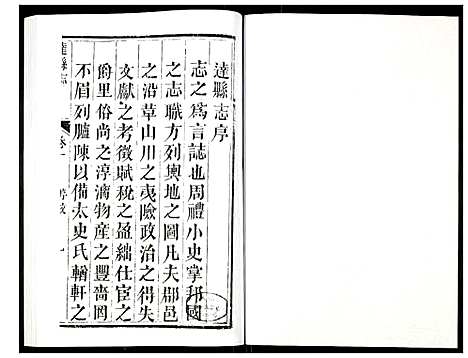 達縣志序
志之為言誌也周禮小史掌邦國
之志職方列輿地之圖凡夫郡邑
之沿革山川之夷險政治之得失
文獻之考徵賦稅之盈絀仕宦之
爵里俗尚之淳漓物產之豐嗇罔
不眉列臚陳以備太史氏輶軒之
達縣志
卷一